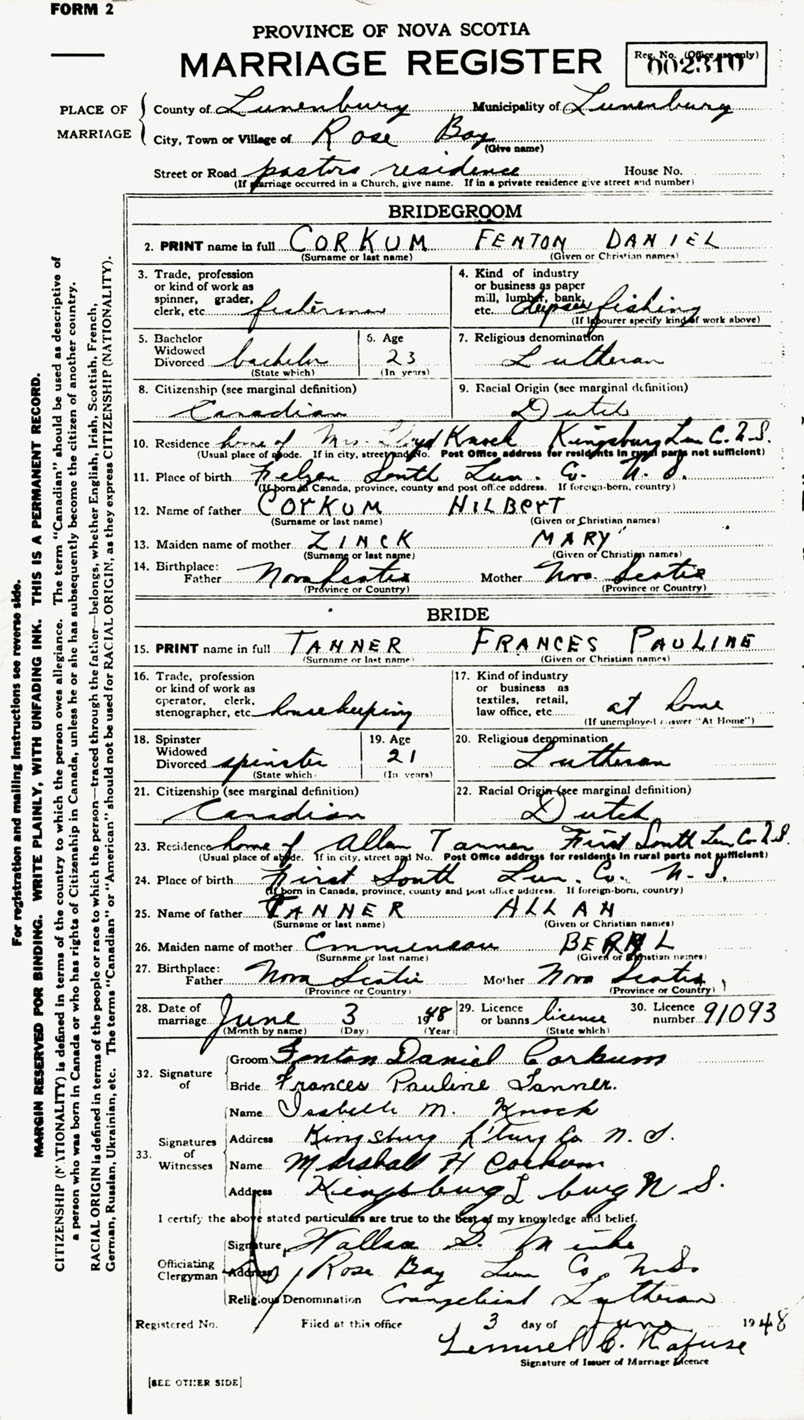 FORM 2
PROVINCE OF NOVA SCOTIA
MARRIAGE REGISTER
Reg. No. (Office use only)
002310
PLACE OF MARRIAGE
County of Lunenburg Municipality of Lunenburg
City, Town or Village of Rose Bay
(Give name)
Street or Road pastors residence House No.
(If marriage occurred in a Church, give name. If in a private residence give street and number)
BRIDEGROOM
2. PRINT name in full CORKUM FENTON DANIEL
(Surname or last name) (Given or Christian names)
3. Trade, profession or kind of work as spinner, grader, clerk, etc. fisherman
4. Kind of industry or business as paper mill, lumber, bank, etc. deepsea fishing
(If labourer specify kind of work above)
5. Bachelor Widowed Divorced bachelor
(State which)
6. Age 23
(In years)
7. Religious denomination Lutheran
8. Citizenship (see marginal definition)
Canadian
9. Racial Origin (see marginal definition)
Dutch
10. Residence home of Mrs. Lloyd Knock Kingsburg Lun C. N.S.
(Usual place of abode. If in city, street and No. Post Office address for residents in rural parts not sufficient)
11. Place of birth Feltzen South Lun. Co. N. S.
(If born in Canada, province, county and post office address. If foreign-born, country)
12. Name of father CORKUM HILBERT
(Surname or last name) (Given or Christian names)
13. Maiden name of mother ZINCK MARY
(Surname or last name) (Given or Christian names)
14. Birthplace: Father Nova Scotia Mother Nova Scotia
(Province or Country) (Province or Country)
BRIDE
15. PRINT name in full TANNER FRANCES PAULINE
(Surname or last name) (Given or Christian names)
16. Trade, profession or kind of work as operator, clerk, stenographer, etc. housekeeping
17. Kind of industry or business as textiles, retail, law office, etc. at home
(If unemployed answer "At Home")
18. Spinster Widowed Divorced spinster
(State which)
19. Age 21
(In years)
20. Religious denomination
Lutheran
21. Citizenship (see marginal definition)
Canadian
22. Racial Origin (see marginal definition)
Dutch
23. Residence home of Allan Tanner First South Lun Co N.S.
(Usual place of abode. If in city, street and No. Post Office address for residents in rural parts not sufficient)
24. Place of birth First South Lun. Co. N. S.
(If born in Canada, province, county and post office address. If foreign-born, country)
25. Name of father TANNER ALLAN
(Surname or last name) (Given or Christian names)
26. Maiden name of mother BERYL
(Surname or last name) (Given or Christian names)
27. Birthplace: Father Nova Scotia Mother Nova Scotia
(Province or Country) (Province or Country)
28. Date of marriage June 3 1948
(Month by name) (Day) (Year)
29. Licence or banns licence
(State which)
30. Licence number 91093
32. Signature of
Groom Fenton Daniel Corkum
Bride Frances Pauline Tanner.
33. Signatures of Witnesses
Name Isabelle M. Knock
Address Kingsburg L'burg Co N. S.
Name Marshall H Corkum
Address Kingsburg L burg N S.
I certify the above stated particulars are true to the best of my knowledge and belief.
Officiating Clergyman
Signature, Wallace G. Minke
Address Rose Bay Lun Co, N.S.
Religious Denomination Evangelical Lutheran
Registered No. Filed at this office 3 day of June 1948
Lemuel C. Rafuse
Signature of Issuer of Marriage Licence
[SEE OTHER SIDE]
For registration and mailing instructions see reverse side.
MARGIN RESERVED FOR BINDING. WRITE PLAINLY, WITH UNFADING INK. THIS IS A PERMANENT RECORD.
CITIZENSHIP (NATIONALITY) is defined in terms of the country to which the person owes allegiance. The term "Canadian" should be used as descriptive of
a person who was born in Canada or who has rights of Citizenship in Canada, unless he or she has subsequently become the citizen of another country.
RACIAL ORIGIN is defined in terms of the people or race to which the person—traced through the father—belongs, whether English, Irish, Scottish, French,
German, Russian, Ukrainian, etc. The terms "Canadian" or "American" should not be used for RACIAL ORIGIN, as they express CITIZENSHIP (NATIONALITY).